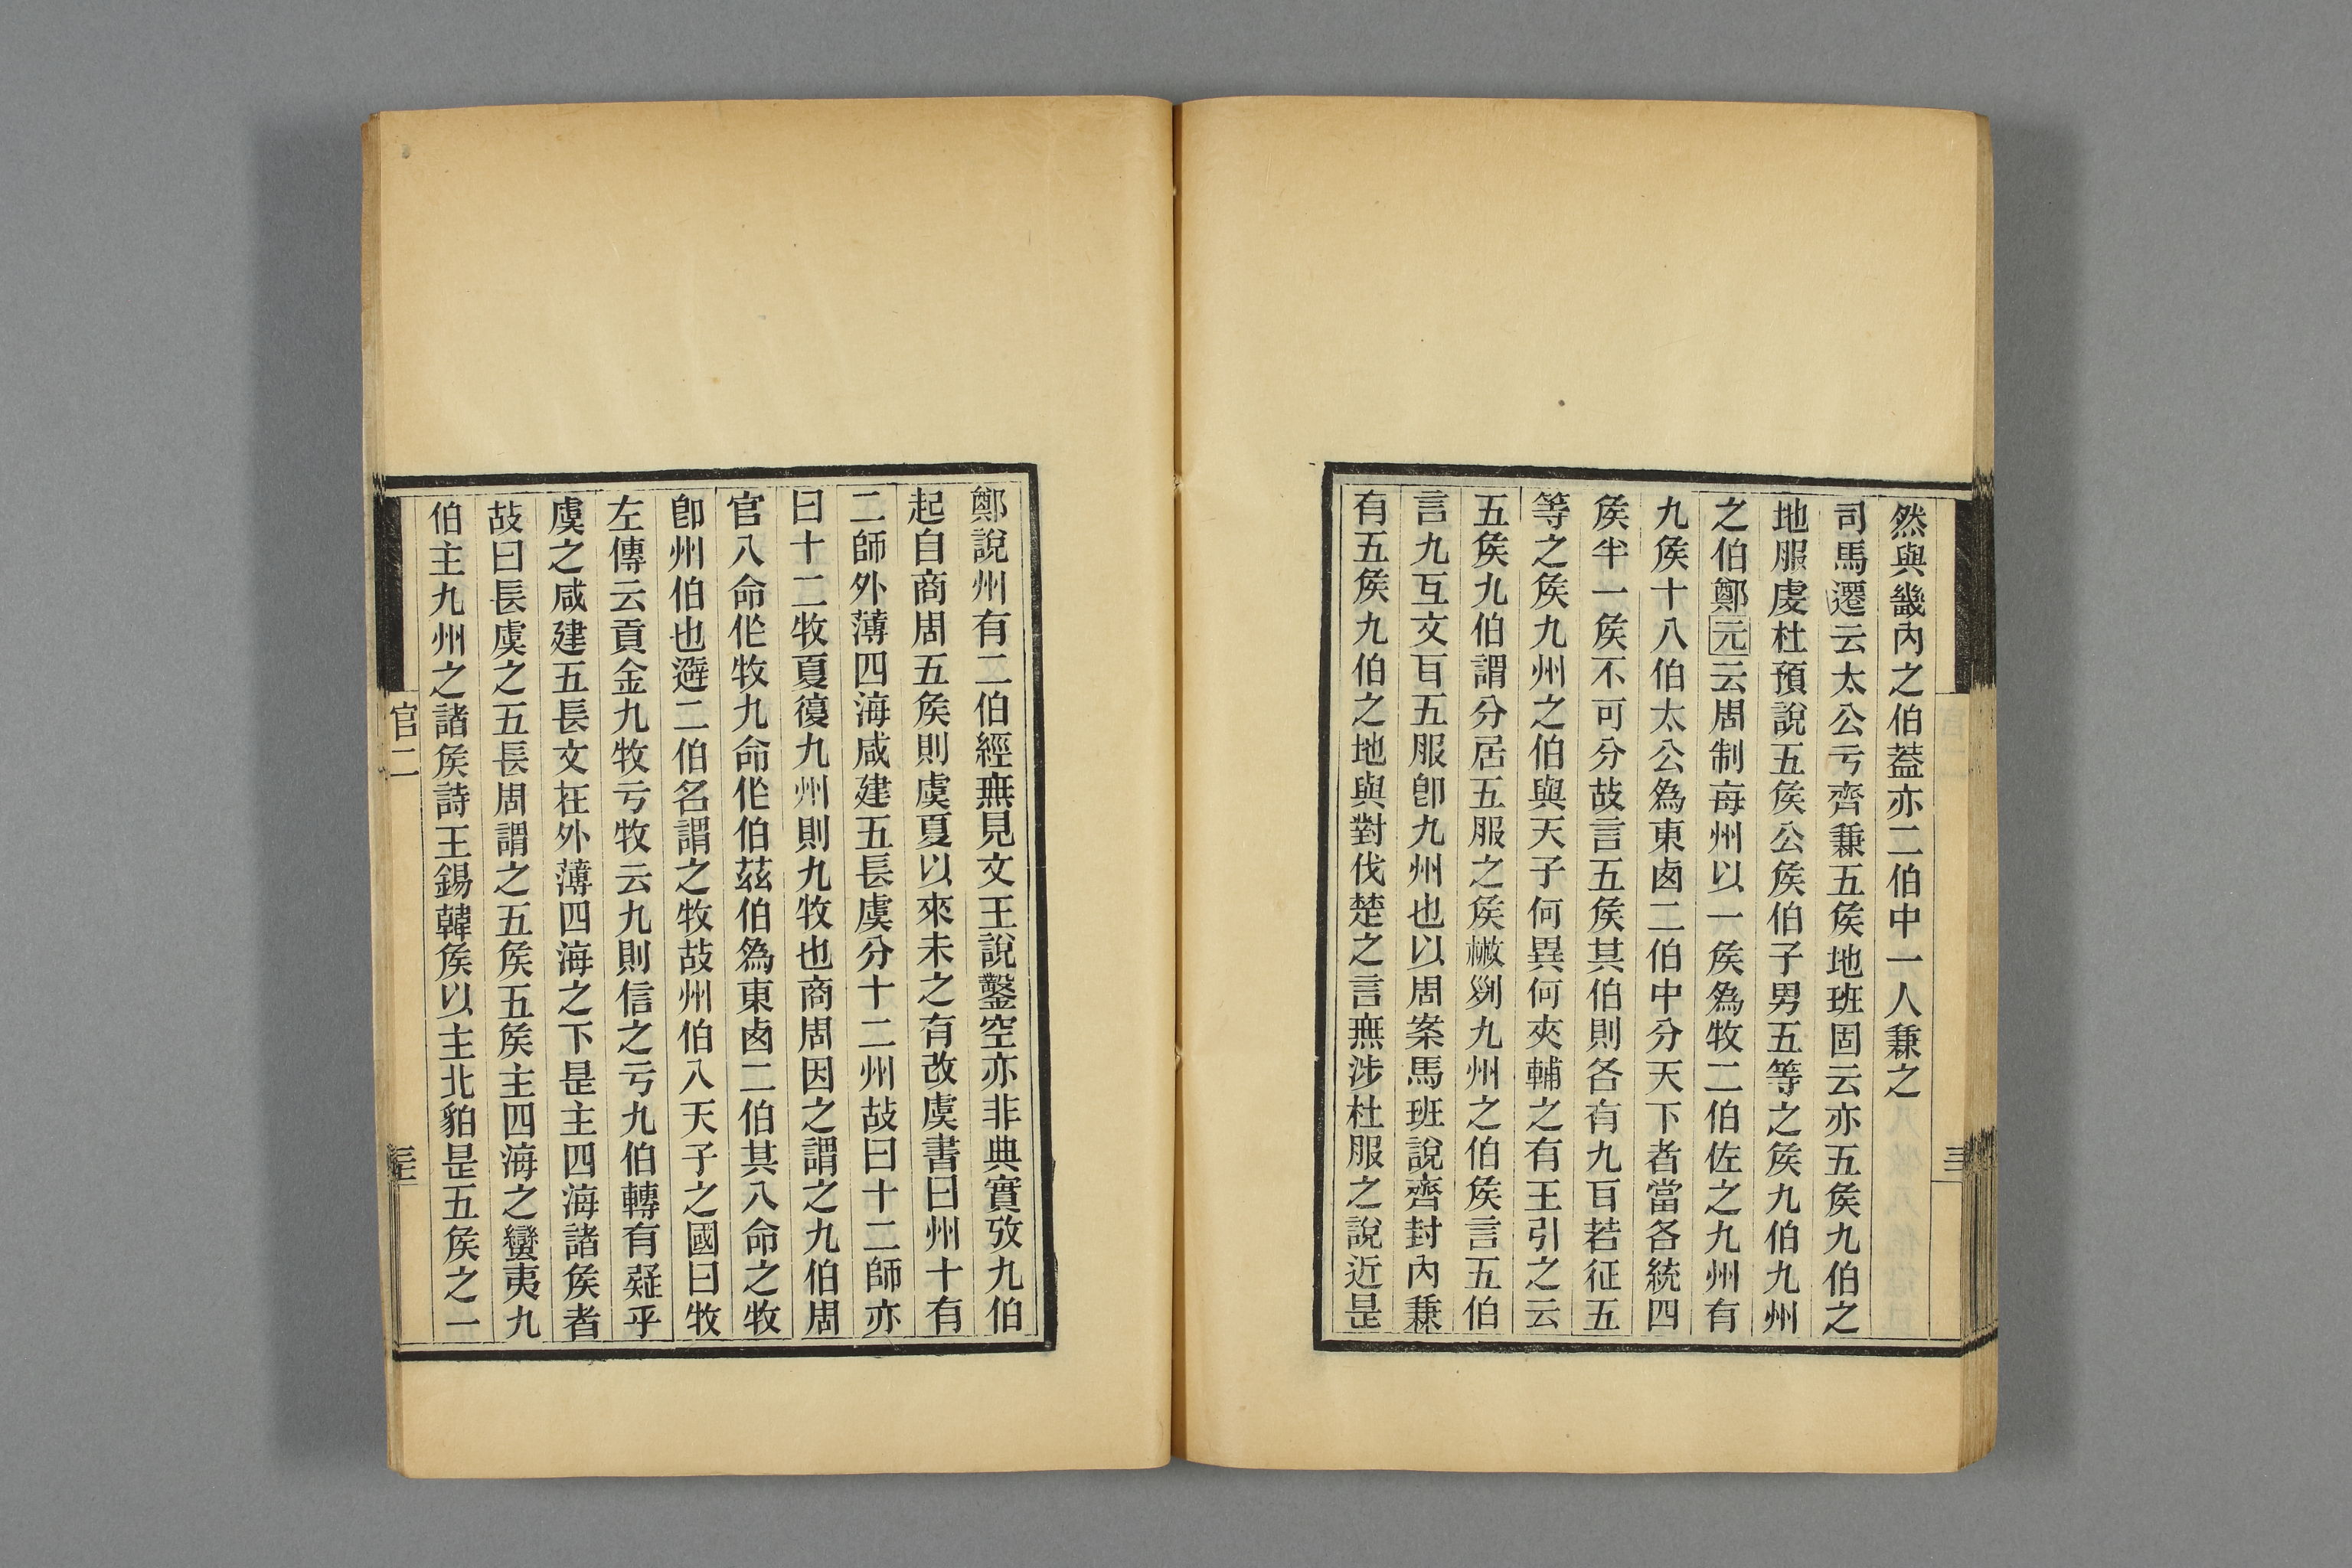 然與畿內之伯蓋亦二伯中一人兼之
司馬遷云太公亏齊兼五矦地班固云亦五矦九伯之
地服虔杜預說五矦公矦伯子男五等之矦九伯九州
之伯鄭元云周制每州以一矦爲牧二伯佐之九州有
九矦十八伯太公爲東鹵二伯中分天下者當各統四
矦半一矦不可分故言五矦其伯則各有九百若征五
等之矦九州之伯與天子何異何夾輔之有王引之云
五矦九伯謂分居五服之矦㪚列九州之伯矦言五伯
言九互文百五服卽九州也以周案馬班說齊封內兼
有五矦九伯之地與對伐楚之言無涉杜服之說近是
鄭說州有二伯經無見文王說鑿空亦非典實攷九伯
起自商周五矦則虞夏以來未之有改虞書曰州十有
二師外薄四海咸建五長虞分十二州故曰十二師亦
曰十二牧夏復九州則九牧也商周因之謂之九伯周
官八命作牧九命作伯茲伯爲東鹵二伯其八命之牧
卽州伯也避二伯名謂之牧故州伯入天子之國曰牧
左傳云貢金九牧亏牧云九則信之亏九伯轉有疑乎
虞之咸建五長文在外薄四海之下是主四海諸矦者
故曰長虞之五長周謂之五矦五矦主四海之蠻夷九
伯主九州之諸矦詩王錫韓矦以主北貊是五矦之一
官二